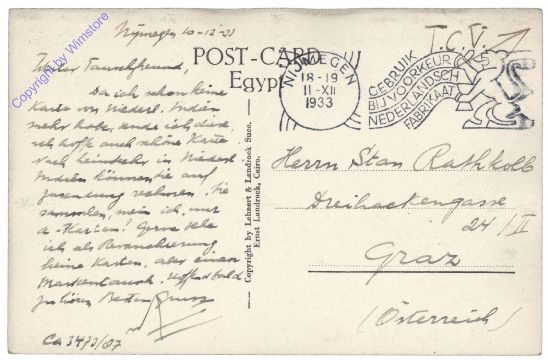 Copyright by Wimstore
Nijmegen 10-12-33
T.C.V.
POST-CARD
Egypt
NIJMEGEN
18-19
11-XII
1933
GEBRUIK
BIJ VOORKEUR
NEDERLANDSCH
FABRIKAAT
Werter Tauschfreund,
Da ich schon keine
Karte von Niederl. Indien
mehr habe, sende ich diese,
ich hoffe auch schöne Karte
Nach heimkehr in Niederl.
Indien können Sie auf
zusendung rechnen. Sie
sammlen, mein ich, nur
a. Karten? Gerne sehe
ich als
keine Karten, aber einen
Markentausch. Hoffe bald
zu hören Besten Gruss
Ca 3473/87
Copyright by Lehnert & Landrock Succ.
Ernst Landrock, Cairo.
Herrn Stan Rathkolb
Dreihackengasse
24/II
Graz
(Österreich)